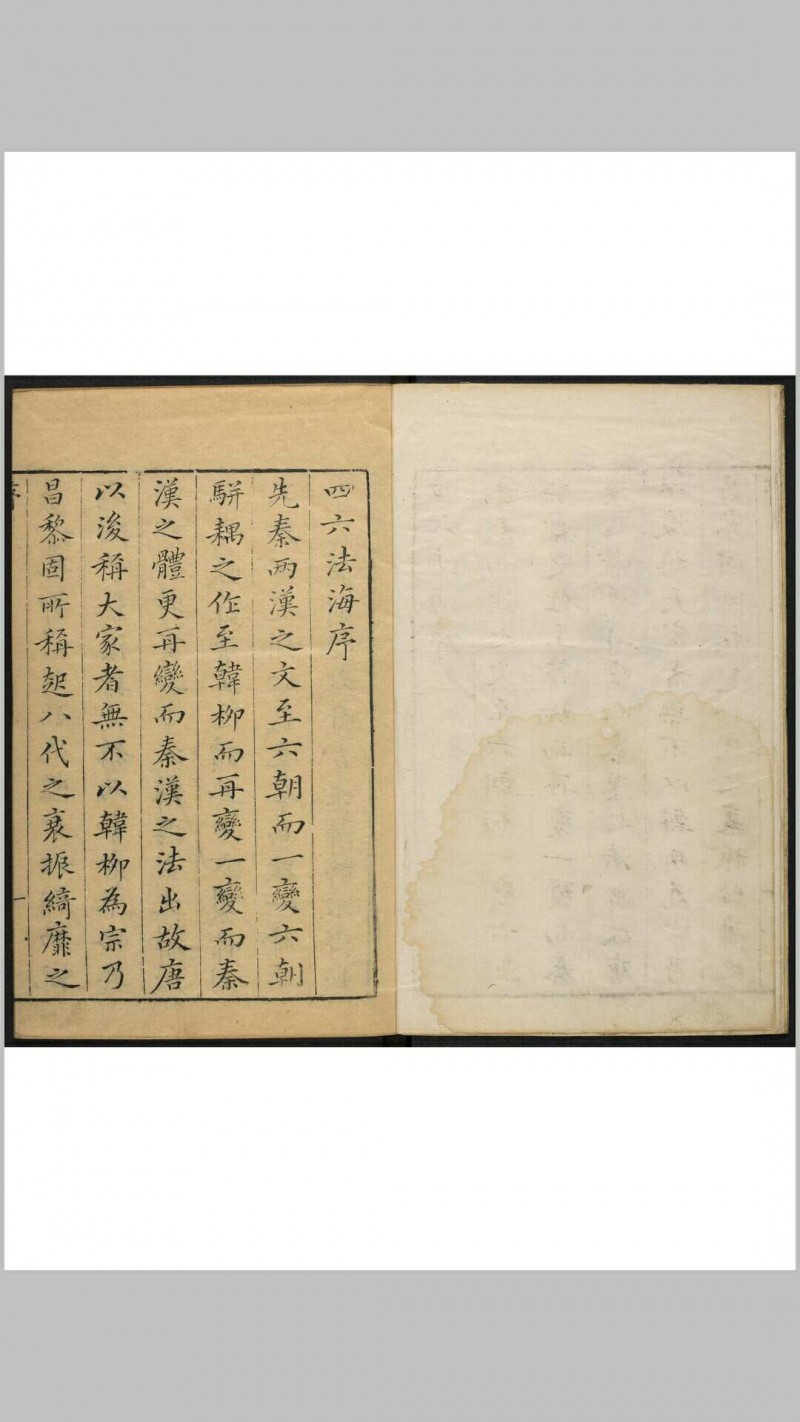 四六法海序
先秦兩漢之文至六朝而一變六朝
駢耦之作至韓柳而再變一變而秦
漢之體更再變而秦漢之法出故唐
以後稱大家者無不以韓柳為宗乃
昌黎固所稱起八代之衰振綺靡之
序
一